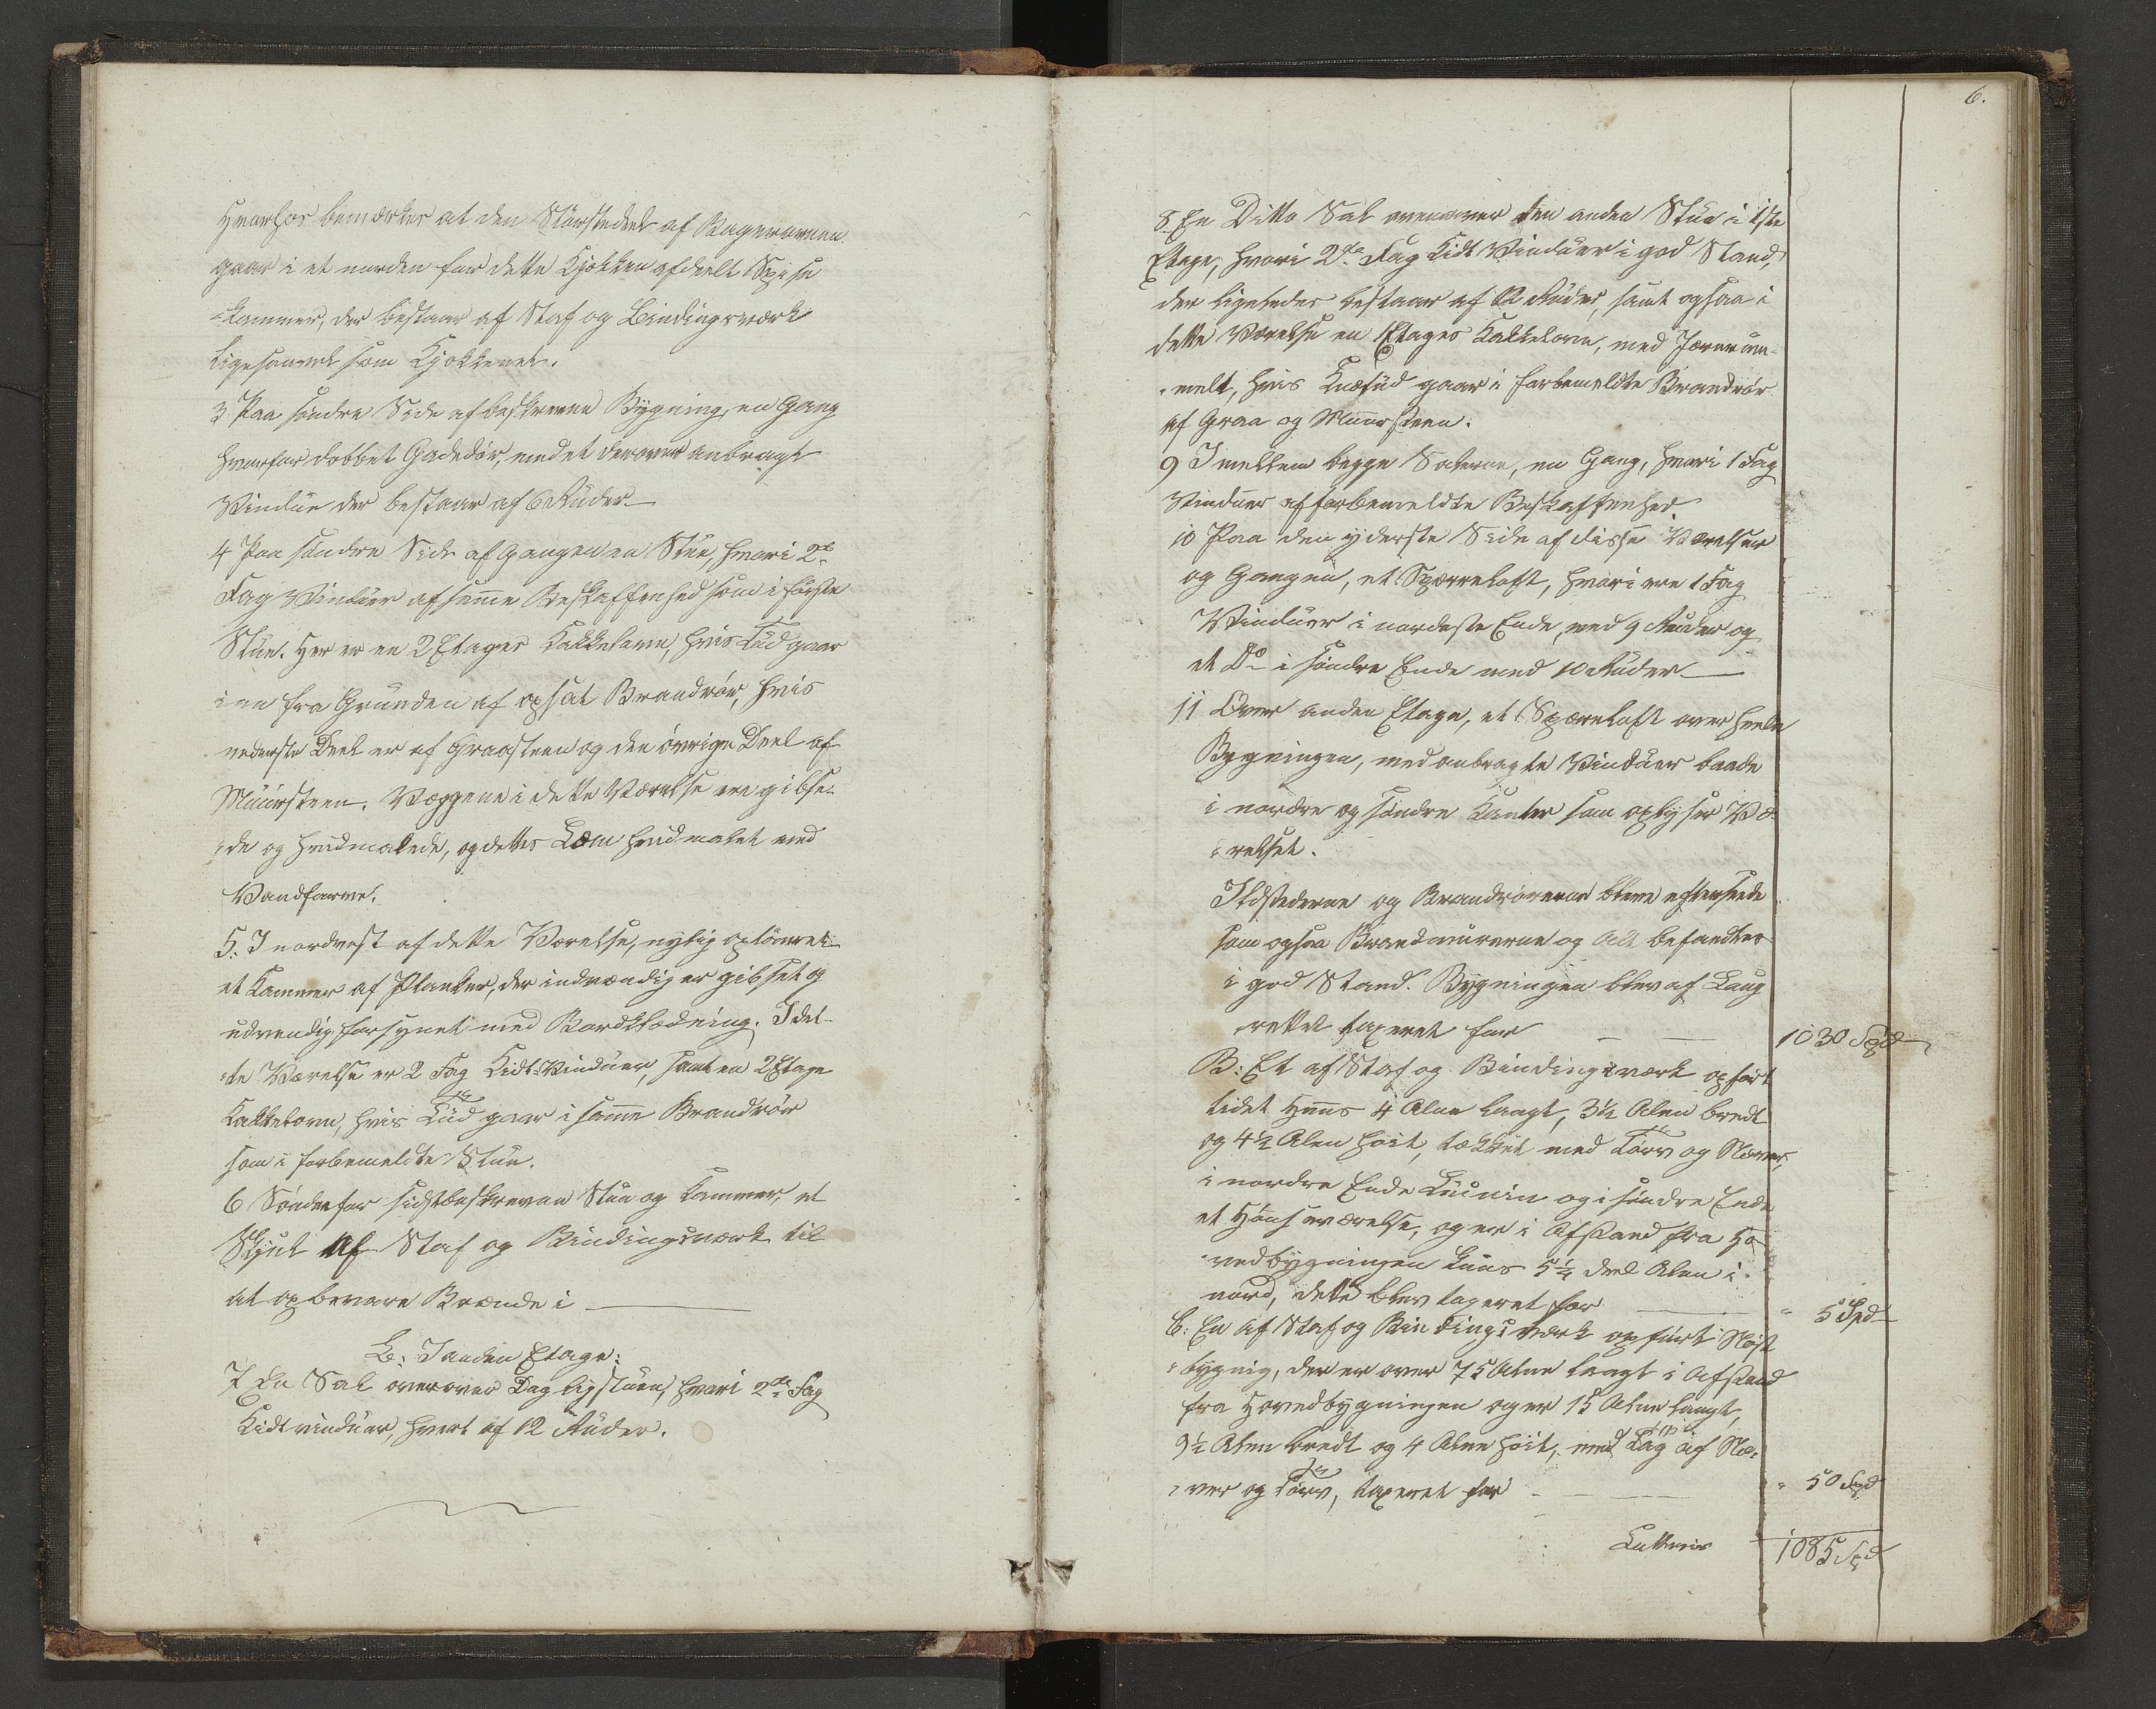 Hvorhos bemærkes at den Størstedeel af Bagerovnen
gaar i et norden for dette Kjøkken afdeelt Spise
-kammer, der bestaar af Staf og Bindingsværk
ligesaavel som Kjøkkenet.
3 Paa søndre Side af beskrevne Bygning, en Gang
hvorfor dobbet Gadedør, med et derover anbragt
Vindue der bestaar af 6 Ruder
4 Paa søndre Side af Gangen en Stue, hvori 2de
Fag Vinduer af samme Beskaffenhed som i første
Stue. Her er en 2 Etages Kakkelovn, hvis Tud gaar
i en fra Grunden af opsat Brandrør, hvis
nederste Deel er af Graasteen og den øvrige Deel af
Muursteen. Væggene i dette Værelse ere gibse-
-de og hvidmalede, og dettes Lem hvidmalet med
Vandfarve.
5. I nordvest af dette Værelse, nylig optømret
et Kammer af Planker, der indvændig er gibset og
udvendig forsynet med Bordklædning. I det-
-te Værelse er 2 Fag Kidt-Vinduer, samt en 2 Etage
Kakkelovn, hvis Tud gaar i samme Brandrør
som i forbemeldte Stue.
6 Sønden for sidstbeskrevne Stue og Kammer, et
Skjul af Staf og Bindingsværk til
at opbevare Brænde i
B: I anden Etage:
7 En Sal over over Dagligstuen, hvori 2de Fag
Kidtvinduer, hvert af 12 Ruder.
6.
8. En Ditto Sal ovenover den anden Stue i 1ste
Etage, hvori 2de Fag Kidt Vinduer i god Stand,
der ligeledes bestaar af 12 Ruder, samt ogsaa i
dette Værelse en 1 Etages Kakkelovn, med Jerntrom-
-melt, hvis Tud gaar i forbemeldte Brandrør
af Graa og Muursteen.
9 Imellem begge Salerne, en Gang, hvori 1 Fag
Vinduer af forbemeldte Beskaffenhed.
10 Paa den yderste Side af disse Værelser
og Gangen, et Sperreloft, hvori ere 1 Fag
Vinduer i nordeste Ende, med 9 Ruder og
et Do i søndre Ende med 10 Ruder
11 Over anden Etage, et Spereloft over heele
Bygningen, med anbragte Vinduer baade
i nordre og søndre Kanter som oplyser Væ
-relset.
Ildstederne og Brandrørerne bleve efterseede
som ogsaa Brandmurerne og Alt befandtes
i god Stand. Bygningen blev af Laug
rettet taxeret for 1030 Spd
B: Et af Staf og Bindingsværk opført
lidet Huus 4 Alne langt, 3½ Alen bredt
og 4½ Alen høit, tækket med Tørv og Næver,
i nordre Ende og i søndre Ende
et Hønseværelse, og er i Afstand fra Ho
-vedbygningen kuns 5¼ deel Alen i
nord, dette blev taxeret for " 5 Spd
C: En af Staf og Bindingsværk opført Nøst
-bygnig, der er over 75 Alne langt i Afstand
fra Hovedbygningen og er 15 Alne langt,
9½ Alen bredt og 4 Alne høit, med Tag af Næ-
-ver og Tørv, taxeret for " 50 Spd
Latteris 1085 Spd